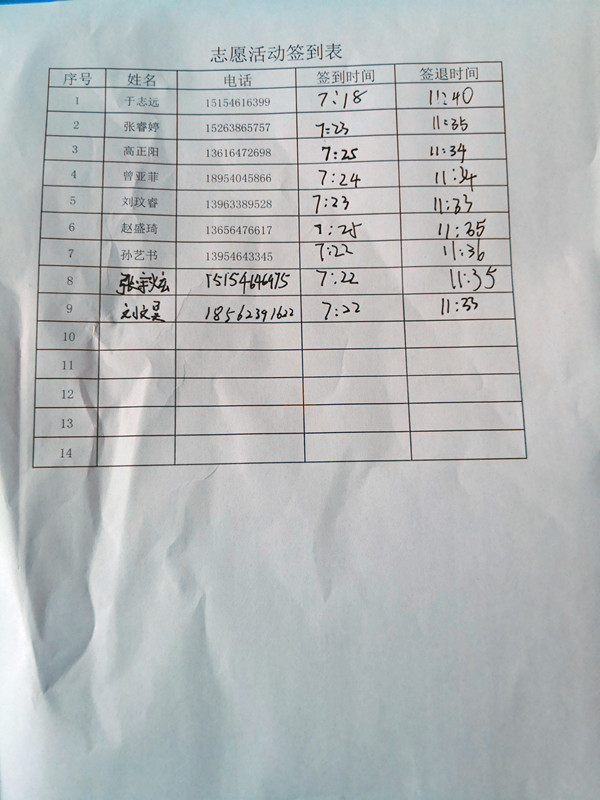 志愿活动签到表
序号 姓名 电话 签到时间 签退时间
1 于志远 15154616399 7:18 11:40
2 张睿婷 15263865757 7:23 11:35
3 高正阳 13616472698 7:25 11:34
4 曾亚菲 18954045866 7:24 11:34
5 刘玟睿 13963389528 7:23 11:33
6 赵盛琦 13656476617 7:25 11:35
7 孙艺书 13954643345 7:22 11:36
8 张宗炫 15154646475 7:22 11:35
9 刘文昊 18562391622 7:22 11:33
10
11
12
13
14